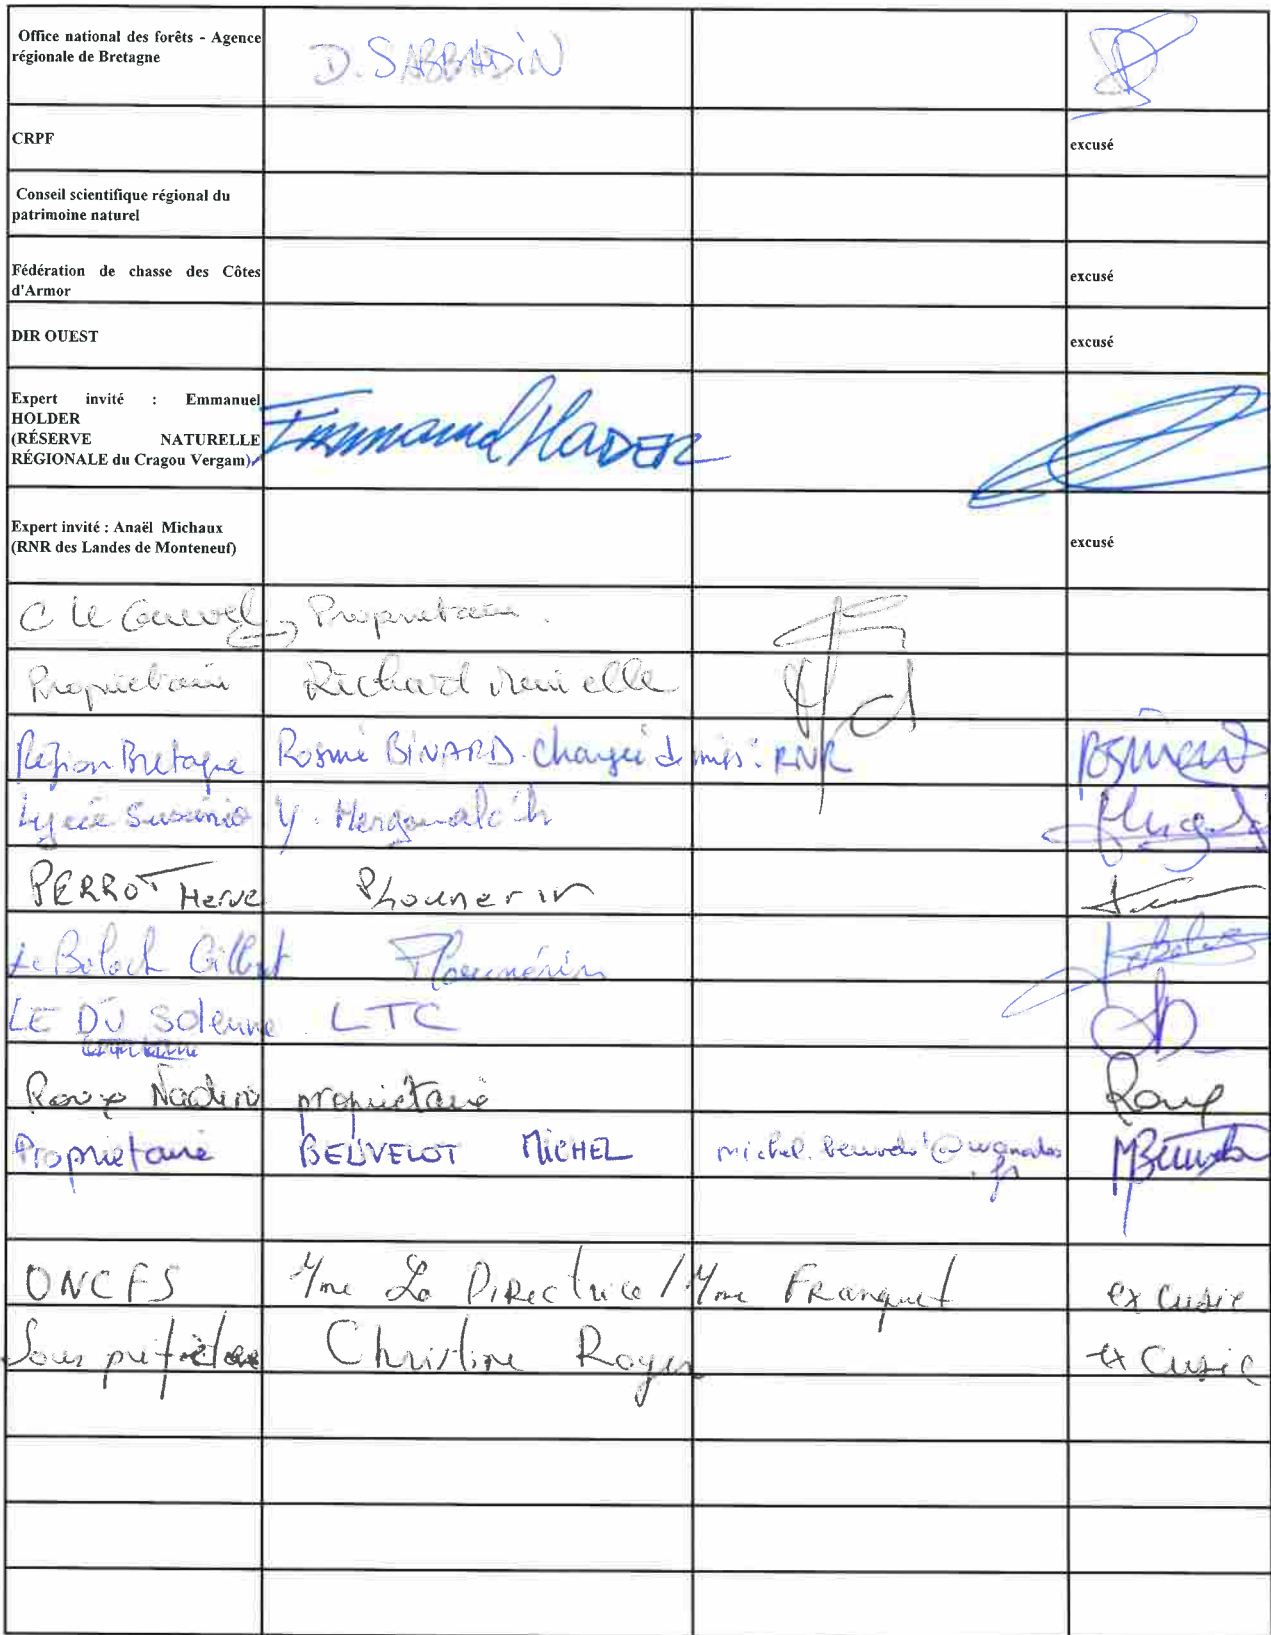 Office national des forêts - Agence
régionale de Bretagne
D. SABBADIN
CRPF
excusé
Conseil scientifique régional du
patrimoine naturel
Fédération de chasse des Côtes
d'Armor
excusé
DIR OUEST
excusé
Expert invité : Emmanuel
HOLDER
(RÉSERVE NATURELLE
RÉGIONALE du Cragou Vergam)
Emmanuel HOLDER
Expert invité : Anaël Michaux
(RNR des Landes de Monteneuf)
excusé
C Le Propriétaire.
Propriétaire Richard
Région Bretagne BINARD. Chargée de miss: RNR
Lycée Suscinio Y.
PERROT Hervé Plounerin
Le Boloch Gilbert Plounérin
LE DÛ Solenne LTC
Nadine propriétaire
Propriétaire BEUVELOT MICHEL
ONCFS Mme La Directrice / Mme Franquet excusée
Sous préfète Christine Royer excusée